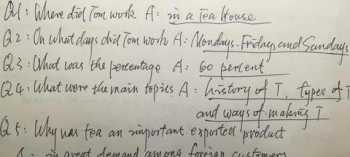 Q1: Where did Tom work A: in a Tea House
Q2: On what days did Tom work A: Mondays. Fridays and Sundays
Q3: What was the percentage A: 60 percent
Q4: What were the main topics A: history of T, types of T
and ways of making T
Q5: Why was tea an important exported product
A: in great demand among foreign customers